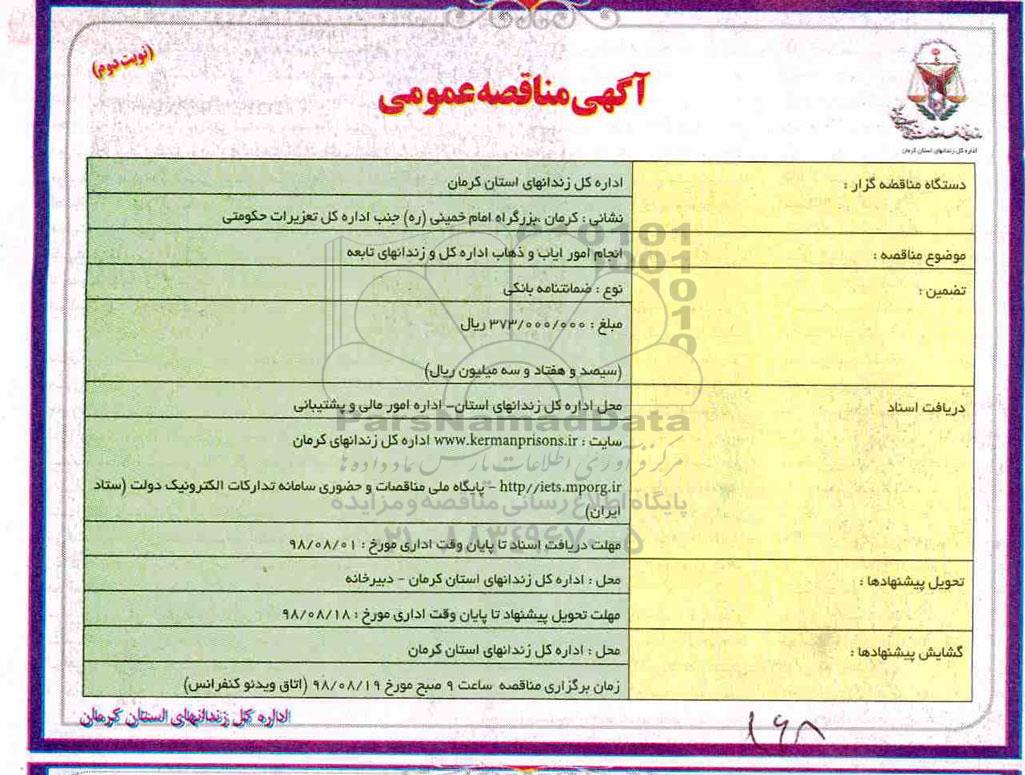 (نوبت دوم)
آگهی مناقصه عمومی
اداره کل زندانهای استان کرمان
دستگاه مناقصه گزار :
اداره کل زندانهای استان کرمان
نشانی : کرمان ،بزرگراه امام خمینی (ره) جنب اداره کل تعزیرات حکومتی
موضوع مناقصه :
انجام امور ایاب و ذهاب اداره کل و زندانهای تابعه
تضمین :
نوع : ضمانتنامه بانکی
مبلغ : ۳۷۳/۰۰۰/۰۰۰ ریال
(سیصد و هفتاد و سه میلیون ریال)
دریافت اسناد
محل اداره کل زندانهای استان– اداره امور مالی و پشتیبانی
سایت : www.kermanprisons.ir اداره کل زندانهای کرمان
http//iets.mporg.ir – پایگاه ملی مناقصات و حضوری سامانه تدارکات الکترونیک دولت (ستاد
ایران)
مهلت دریافت اسناد تا پایان وقت اداری مورخ : ۹۸/۰۸/۰۱
تحویل پیشنهادها :
محل : اداره کل زندانهای استان کرمان – دبیرخانه
مهلت تحویل پیشنهاد تا پایان وقت اداری مورخ : ۹۸/۰۸/۱۸
گشایش پیشنهادها :
محل : اداره کل زندانهای استان کرمان
زمان برگزاری مناقصه ساعت ۹ صبح مورخ ۹۸/۰۸/۱۹ (اتاق ویدئو کنفرانس)
اداره کل زندانهای استان کرمان
ParsNamadData
مرکز فرآوری اطلاعات پارس نماد داده ها
پایگاه اطلاع رسانی مناقصه و مزایده
۰۲۱-۸۸۳۴۹۶۷۰-۵